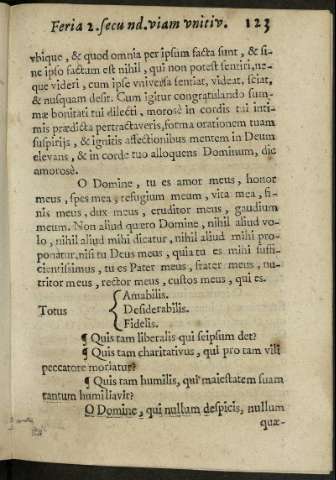 Feria 2. secund. viam vnitiv. 123
vbique, & quod omnia per ipsum facta sunt, & si-
ne ipso factum est nihil, qui non potest sentiri, ne-
que videri, cum ipse vniversa sentiat, videat, sciat,
& nusquam desit. Cum igitur congratulando sum-
mæ bonitati tui dilecti, morosè in cordis tui inti-
mis prædicta pertractaveris, forma orationem tuam
suspirijs, & ignitis affectionibus mentem in Deum
elevans, & in corde tuo alloquens Dominum, dic
amorosè.
O Domine, tu es amor meus, honor
meus, spes mea, refugium meum, vita mea, fi-
nis meus, dux meus, eruditor meus, gaudium
meum. Non aliud quero Domine, nihil aliud vo-
lo, nihil aliud mihi dicatur, nihil aliud mihi pro-
ponatur, nisi tu Deus meus, quia tu es mihi suffi-
cientissimus, tu es Pater meus, frater meus, nu-
tritor meus, rector meus, custos meus, qui es.
Amabilis.
Totus { Desiderabilis.
Fidelis.
¶ Quis tam liberalis qui seipsum det?
¶ Quis tam charitativus, qui pro tam vili
peccatore moriatur?
¶ Quis tam humilis, qui maiestatem suam
tantum humiliavit?
O Domine, qui nullum despicis, nullum
quæ-